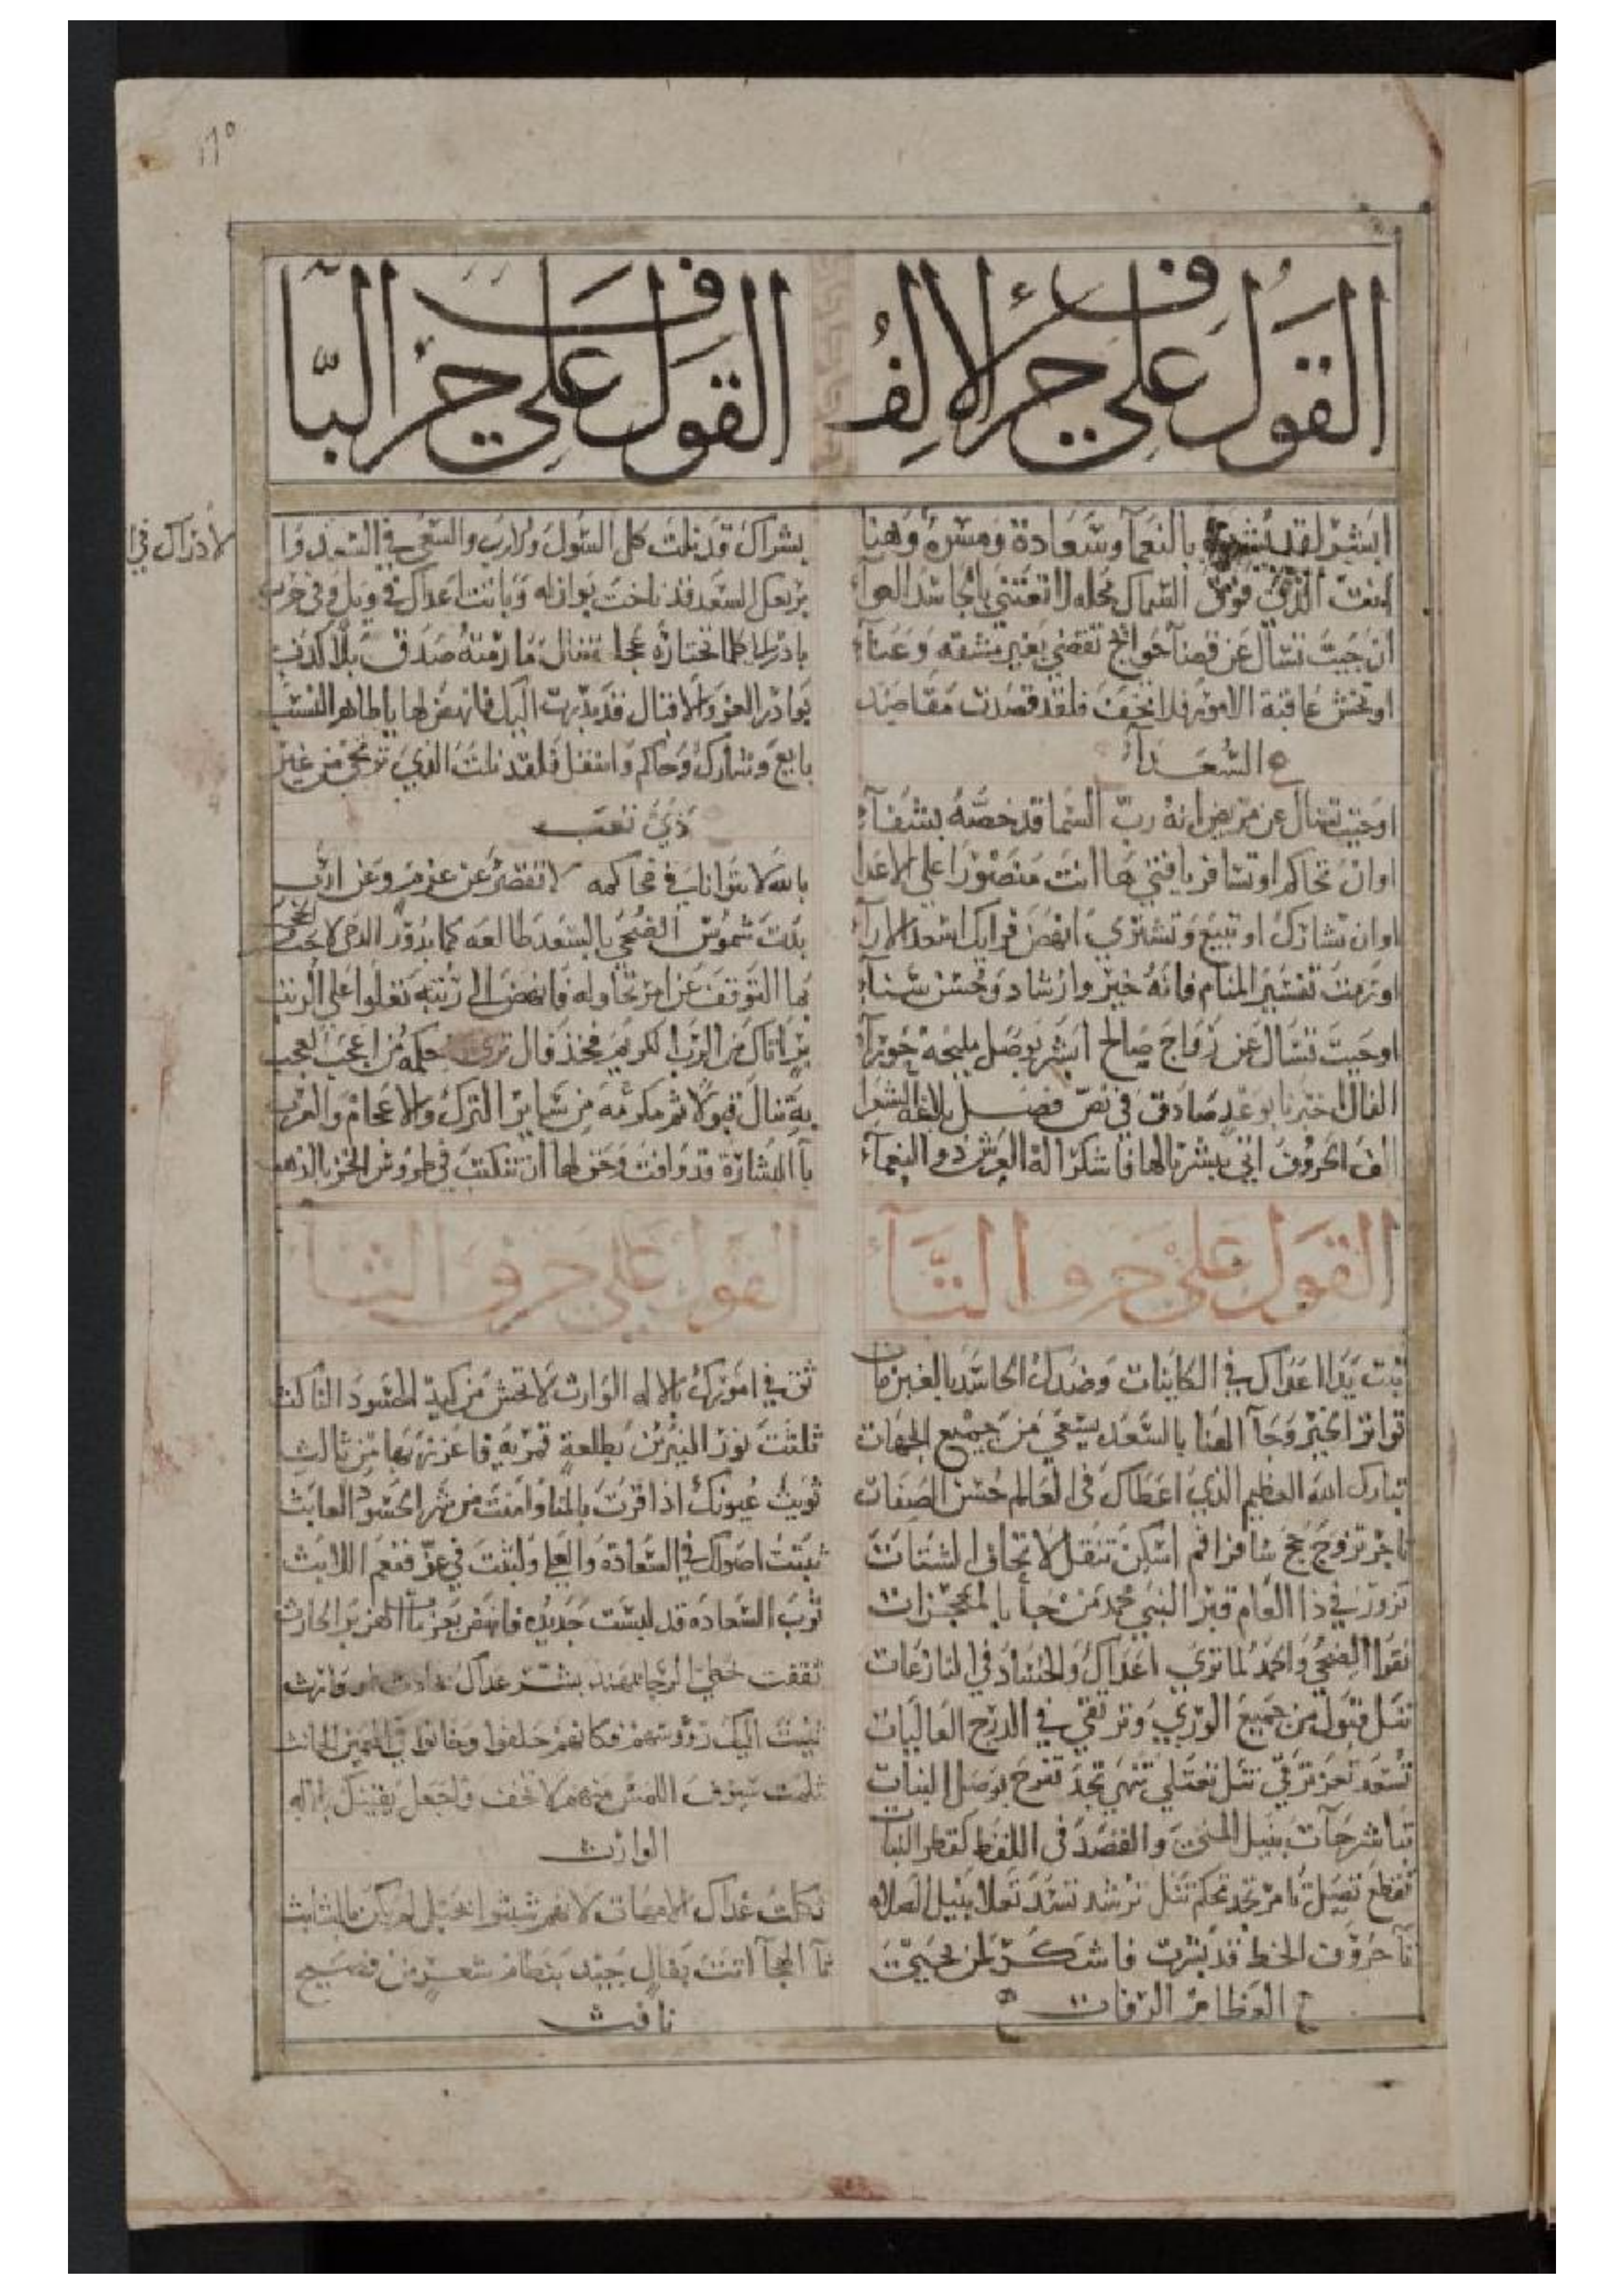 القول على حرف الالف
ابشر لقد بشرت بالنعما وسعادة ومسرة وهنا
انت الذي فوق السماك محله
ان جيت تسال عن قضآ حوائج تقضي بغير مشقه وعنآ
او تخش عاقبة الامور فلا تخف فلقد قصدت مقاصد
السعدآ
او جيت تسال عن مريض انه رب السما قد خصه بشفآ
او ان تحاكم او تسافر يا فتي ها انت منصورا علي الاعدا
او ان تشارك او تبيع وتشتري انهض فرايك اسعد الارآ
او رمت تفسير المنام فانه خير وارشاد وحسن سنآ
او جيت تسال عن زواج صالح ابشر بوصل مليحه حورآ
الفال اخبرنا بوعد صادق في نص فضل بلاغه الشعرا
الف الحروف اتي يبشر بالهنا فاشكر اله العرش ذو النعمآ
القول على حرف البآ
بشراك قد نلت كل السول والارب والسعي في السعد والادراك في
برج السعد قد ناخت نوازله وباتت اعداك في ويل وفي حرب
بادر لما تختاره عجلا تنال ما رمته صدق بلا كذب
بوادر العز والاقبال قد بدرت اليك فانهض لها يا طاهر النسب
بايع وشارك وحاكم وانتقل فلقد نلت الذي ترتجي من غير
ذي تعب
بالله لا تتوانا في محاكمه لا تقصر عن عزم وعن ادب
بدت شموس الضحي بالسعد طالعه كما بدور الدجي
بما التوقف عن امر تحاوله فانهض الي رتبه تعلوا علي الرتب
بر اتاك من الرب الكريم فخذ فال تري حكمه من اعجب العجب
به تنال قبولا ثم مكرمه من ساير الترك والاعجام والعرب
بآ البشارة قد وافت وحق لها ان تنكتب في طروس الخز بالذهب
القول على حرف التآ
تبت يدا اعداك في الكاينات وضدك الحاسد بالغبن مات
تواتر الخير وجآ الهنا بالسعد يسعي من جميع الجهات
تبارك الله العظيم الذي اعطاك في العالم حسن الصفات
تاجر تزوج حج سافر اقم اسكن تنقل لا تخاف الشتات
تزور في ذا العام قبر النبي محمد من جآ بالمعجزات
تقرا الضحي والحمد لما تري اعداك والحساد في النازعات
تنل قبول من جميع الوري وترتقي في الدرج العاليات
تسعد تعز ترقي تنل تعتلي تنهي تجد تفرح بوصل البنات
تباشر جآت بنيل المني والقصد في اللفظ كقطر النبات
تقطع تصيل تامر تجد تحكم تنل ترشد تسد تعلا بنيل الصلاه
تآ حروف الخط قد بشرت فاشكر لمن يحيي
العظام الرفات
القول على حرف الثآ
ثق في امورك بالاله الوارث لا تخش من كيد الحسود الناكث
ثلثت نور النيرين بطلعة قمريه فاعززتها من ثالث
ثويت عيونك اذا قرت بالهنا وامنت من شر الحسود العابث
ثبتت اصولك في السعادة والعلي ولبثت في عز فنعم اللابث
ثوب السعاده قد لبست جديده فانهض بعزمات الهزبر الحارث
ثنيت اليك رووسهم فكانهم حلفوا وخانوا في اليمين الحانث
ثلمت سيوف اللمس منهم لا تخف واجعل يقينك بالاله
الوارث
ثكلت عداك الامهات لانهم
ثآ الهجآ اتت بفال جيد بنظام شعر من فصيح
نافث